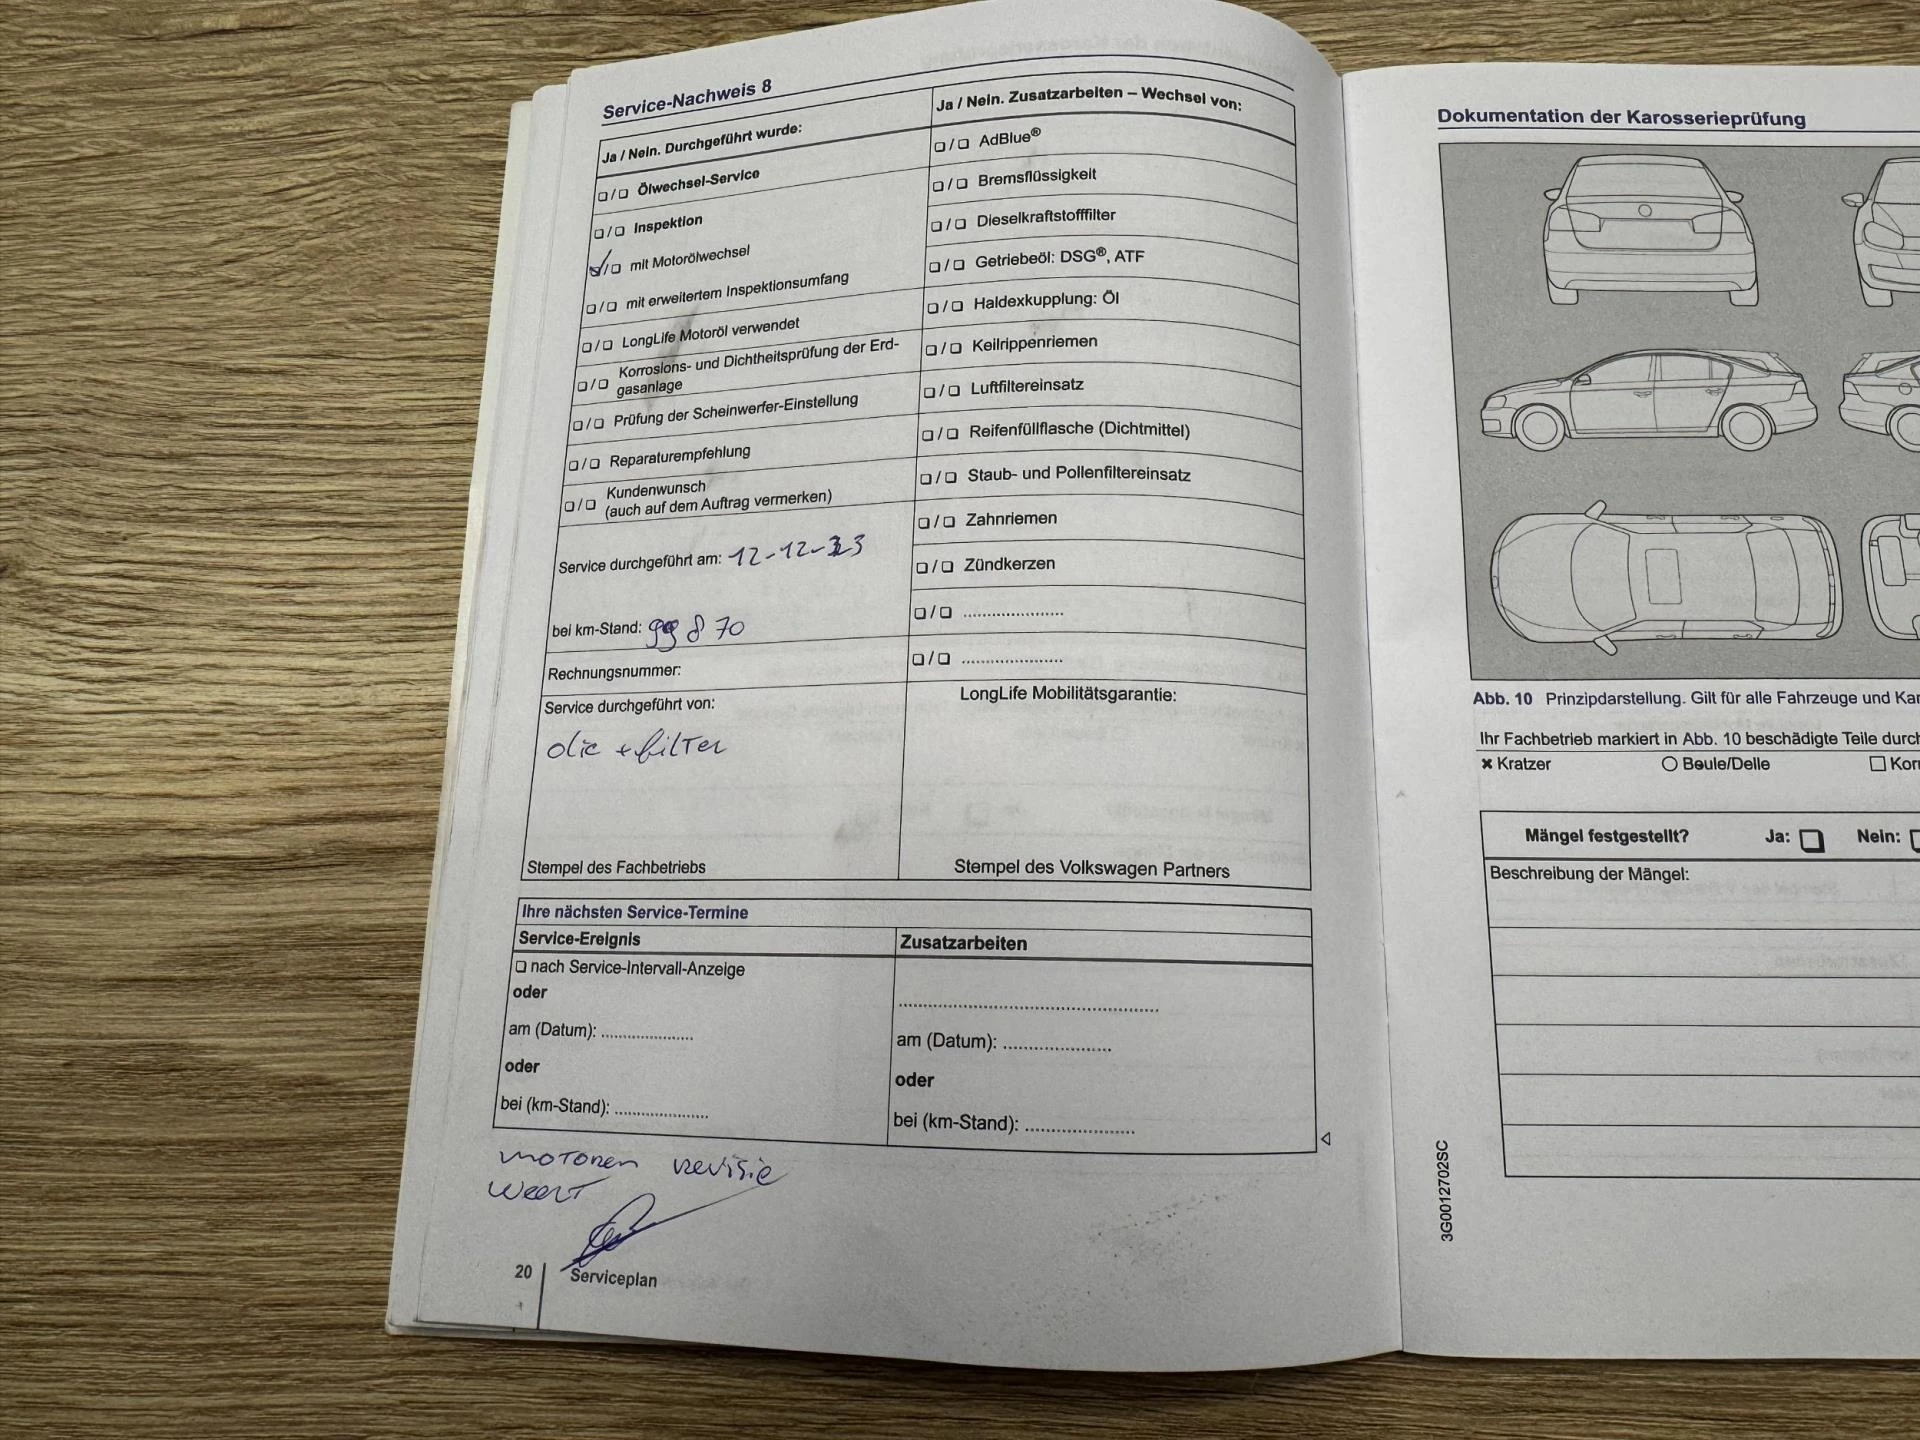 Service-Nachweis 8
Ja / Nein. Durchgeführt wurde:
Ölwechsel-Service
Inspektion
mit Motorölwechsel
mit erweitertem Inspektionsumfang
LongLife Motoröl verwendet
Korrosions- und Dichtheitsprüfung der Erd-
gasanlage
Prüfung der Scheinwerfer-Einstellung
Reparaturempfehlung
Kundenwunsch
(auch auf dem Auftrag vermerken)
Service durchgeführt am: 12-12-23
bei km-Stand: 99870
Rechnungsnummer:
Service durchgeführt von:
olie + filter
Stempel des Fachbetriebs
Ja / Nein. Zusatzarbeiten – Wechsel von:
AdBlue®
Bremsflüssigkeit
Dieselkraftstofffilter
Getriebeöl: DSG®, ATF
Haldexkupplung: Öl
Keilrippenriemen
Luftfiltereinsatz
Reifenfüllflasche (Dichtmittel)
Staub- und Pollenfiltereinsatz
Zahnriemen
Zündkerzen
LongLife Mobilitätsgarantie:
Stempel des Volkswagen Partners
Ihre nächsten Service-Termine
Service-Ereignis
nach Service-Intervall-Anzeige
oder
am (Datum):
oder
bei (km-Stand):
Zusatzarbeiten
am (Datum):
oder
bei (km-Stand):
motoren revisie
weert
20
Serviceplan
Dokumentation der Karosserieprüfung
Abb. 10 Prinzipdarstellung. Gilt für alle Fahrzeuge und Kar
Ihr Fachbetrieb markiert in Abb. 10 beschädigte Teile durch
Kratzer
Beule/Delle
Korr
Mängel festgestellt? Ja: Nein:
Beschreibung der Mängel:
3G0012702SC